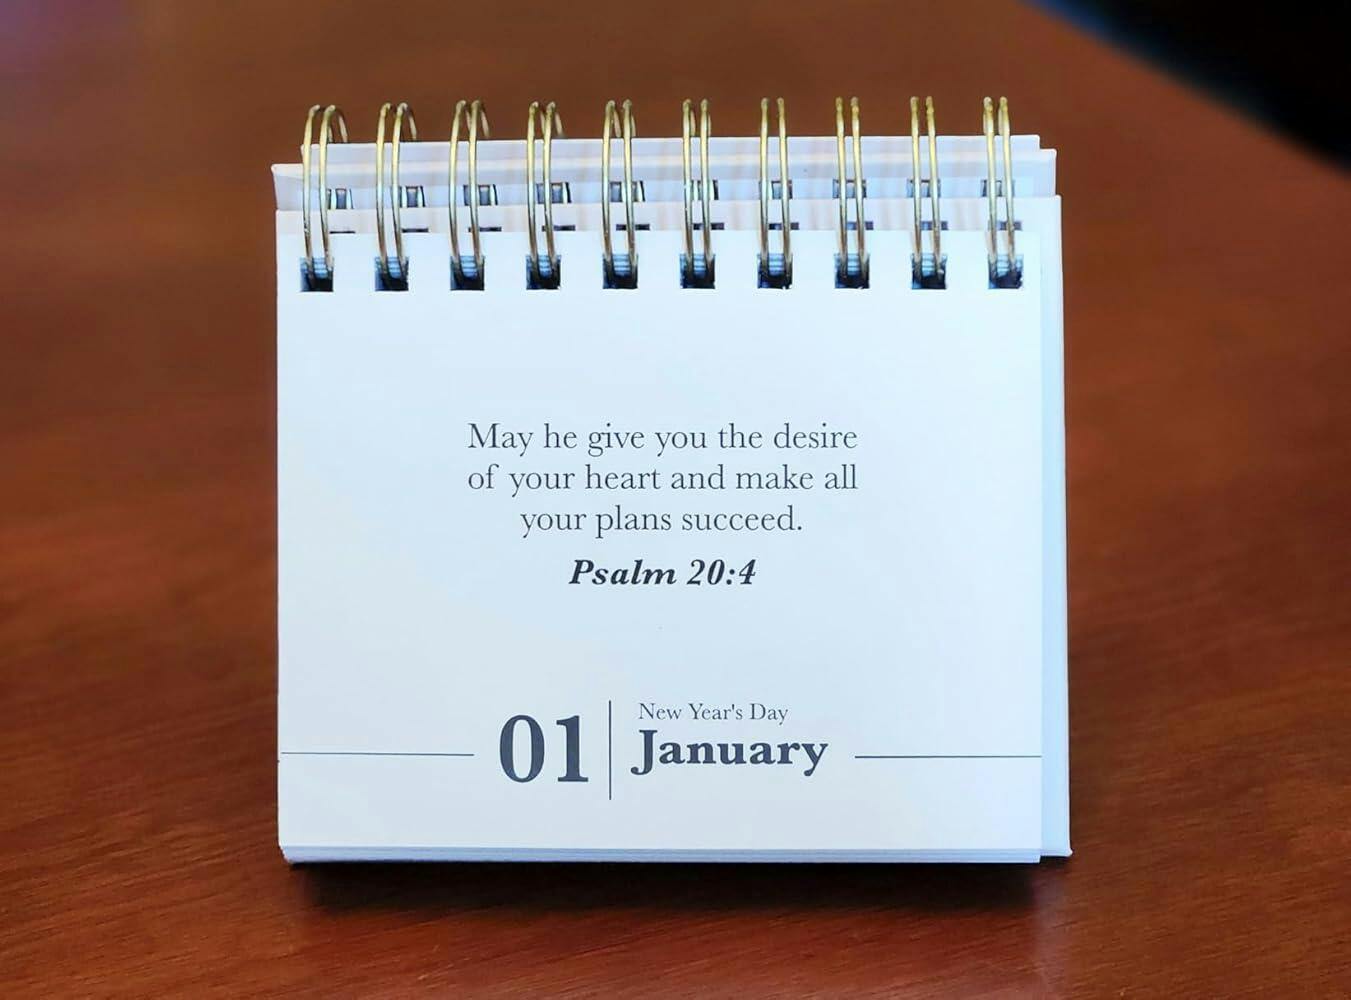 May he give you the desire
of your heart and make all
your plans succeed.
Psalm 20:4
01
New Year's Day
January